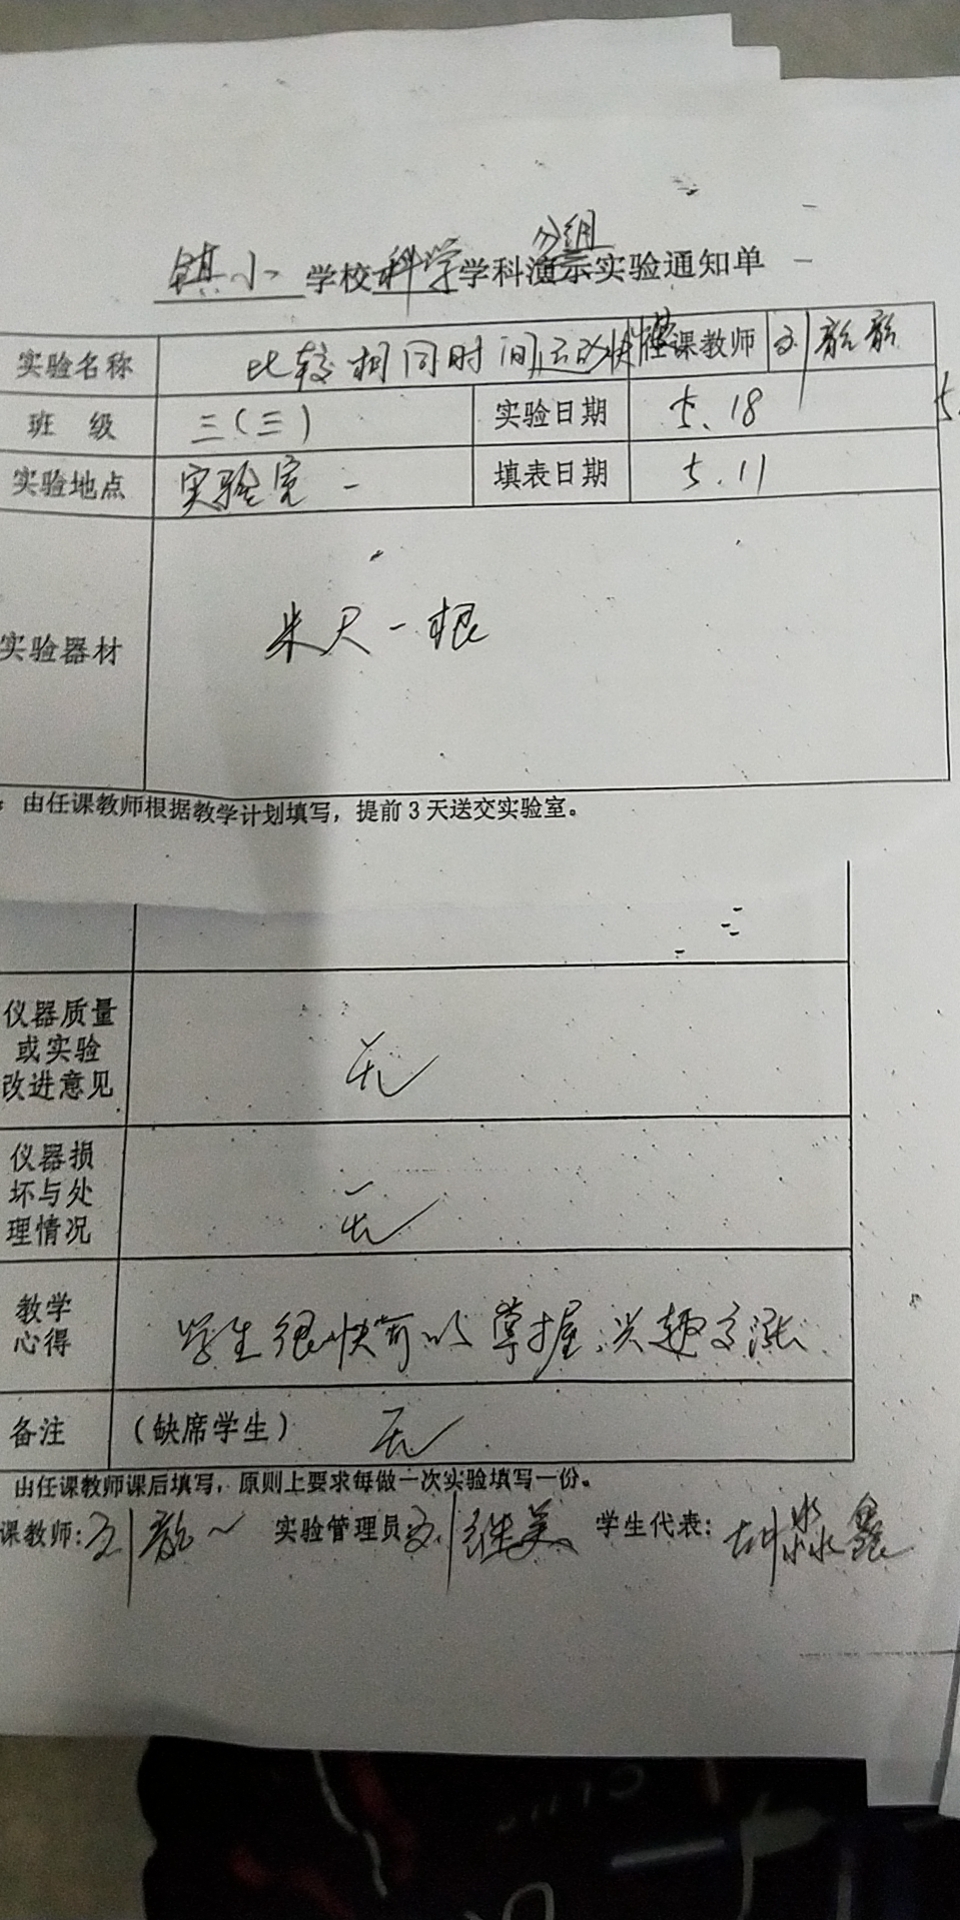 分组
镇小 学校 科学 学科演示实验通知单
实验名称 比较相同时间运动快慢 任课教师 刘韵韵
班 级 三(三) 实验日期 5.18
实验地点 实验室一 填表日期 5.11
实验器材 米尺一根
由任课教师根据教学计划填写，提前3天送交实验室。
仪器质量
或实验
改进意见 无
仪器损
坏与处
理情况 无
教学
心得 学生很快可以掌握,兴趣高涨
备注 (缺席学生) 无
由任课教师课后填写，原则上要求每做一次实验填写一份。
课教师: 刘 实验管理员 刘继美 学生代表: 胡淼鑫